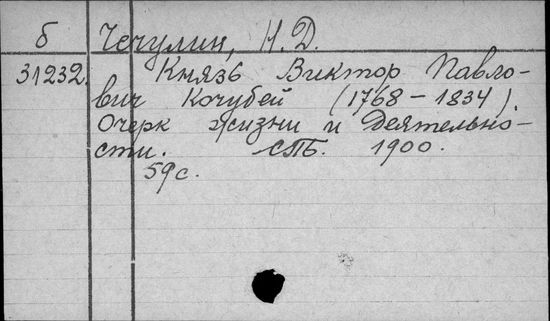 б Чечулин, Н.Д.
31232. Князь Виктор Павло-
вич Кочубей (1768-1834).
Очерк жизни и деятельно-
сти. СПБ. 1900.
59с.